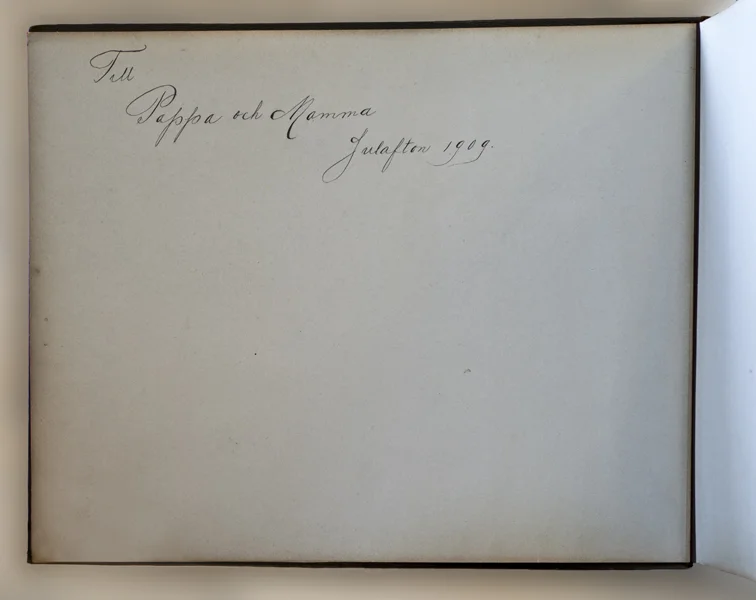 Till
Pappa och Mamma
Julafton 1909.